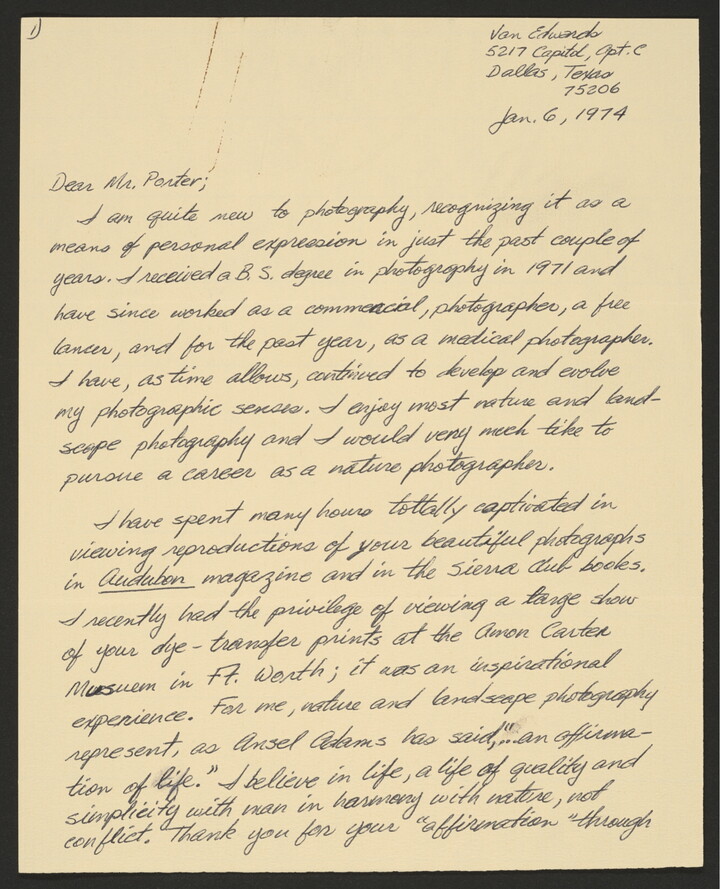 1)
Van Edwards
5217 Capitol, Apt. C
Dallas, Texas
75206
Jan. 6, 1974
Dear Mr. Porter;
I am quite new to photography, recognizing it as a
means of personal expression in just the past couple of
years. I received a B.S. degree in photography in 1971 and
have since worked as a commercial, photographer, a free
lancer, and for the past year, as a medical photographer.
I have, as time allows, continued to develop and evolve
my photographic senses. I enjoy most nature and land-
scape photography and I would very much like to
pursue a career as a nature photographer.
I have spent many hours tottally captivated in
viewing reproductions of your beautiful photographs
in Audubon magazine and in the Sierra Club books.
I recently had the privilege of viewing a large show
of your dye-transfer prints at the Amon Carter
Musuem in Ft. Worth; it was an inspirational
experience. For me, nature and landscape photography
represent, as Ansel Adams has said, "...an affirma-
tion of life." I believe in life, a life of quality and
simplicity with man in harmony with nature, not
conflict. Thank you for your "affirmation" through